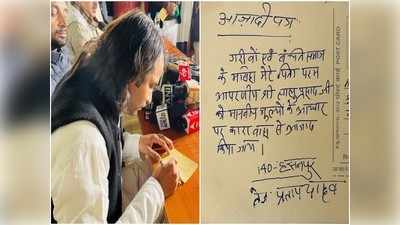 आज़ादी पत्र
गरीबों एवं वंचित समाज
के मेरे पिता परम
आदरणीय श्री लालू प्रसाद जी
को मानवीय मूल्यों के आधार
पर कारावास से आजाद
किया जाय।
140-हसनपुर
तेज प्रताप यादव
POST CARD